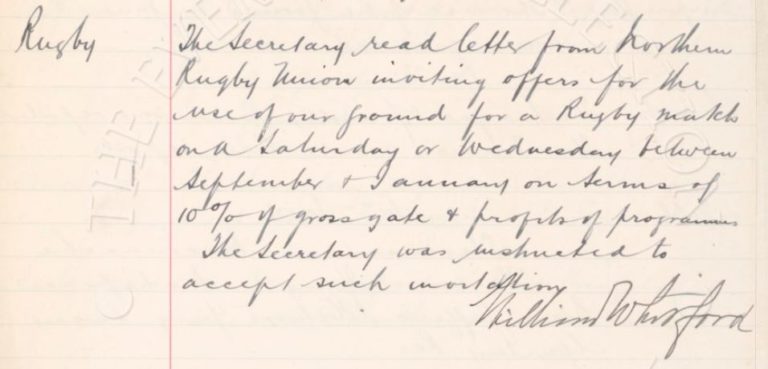 Rugby
The Secretary read letter from Northern
Rugby Union inviting offers for the
use of our ground for a Rugby match
on a Saturday or Wednesday between
September & January on terms of
10% of gross gate & profits of programmes
The Secretary was instructed to
accept such invitation
William Whitford